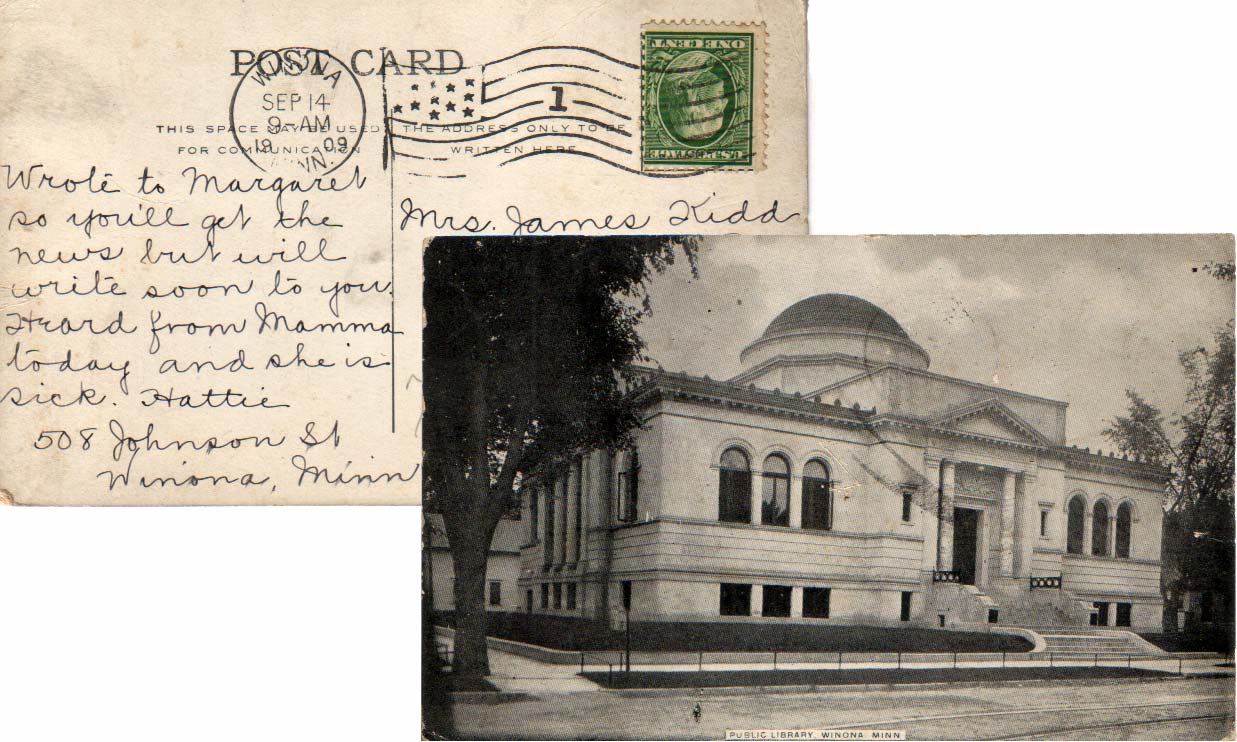 POST CARD
WINONA
SEP 14
9-AM
1909
MINN.
1
ONE CENT
THIS SPACE MAY BE USED
FOR COMMUNICATION
THE ADDRESS ONLY TO BE
WRITTEN HERE
Wrote to Margaret
so you'll get the
news but will
write soon to you.
Heard from Mamma
today and she is
sick. Hattie
508 Johnson St
Winona, Minn
Mrs. James Kidd
PUBLIC LIBRARY, WINONA, MINN